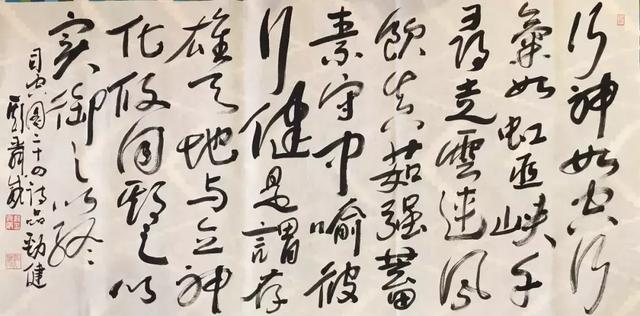 行神如空行
氣如虹巫峽千
尋走雲連風
飲真茹强蓄
素守中喻彼
行健是謂存
雄天地与立神
化攸同期之以
實御之以終
司空圖二十四詩品勁健
劉舜